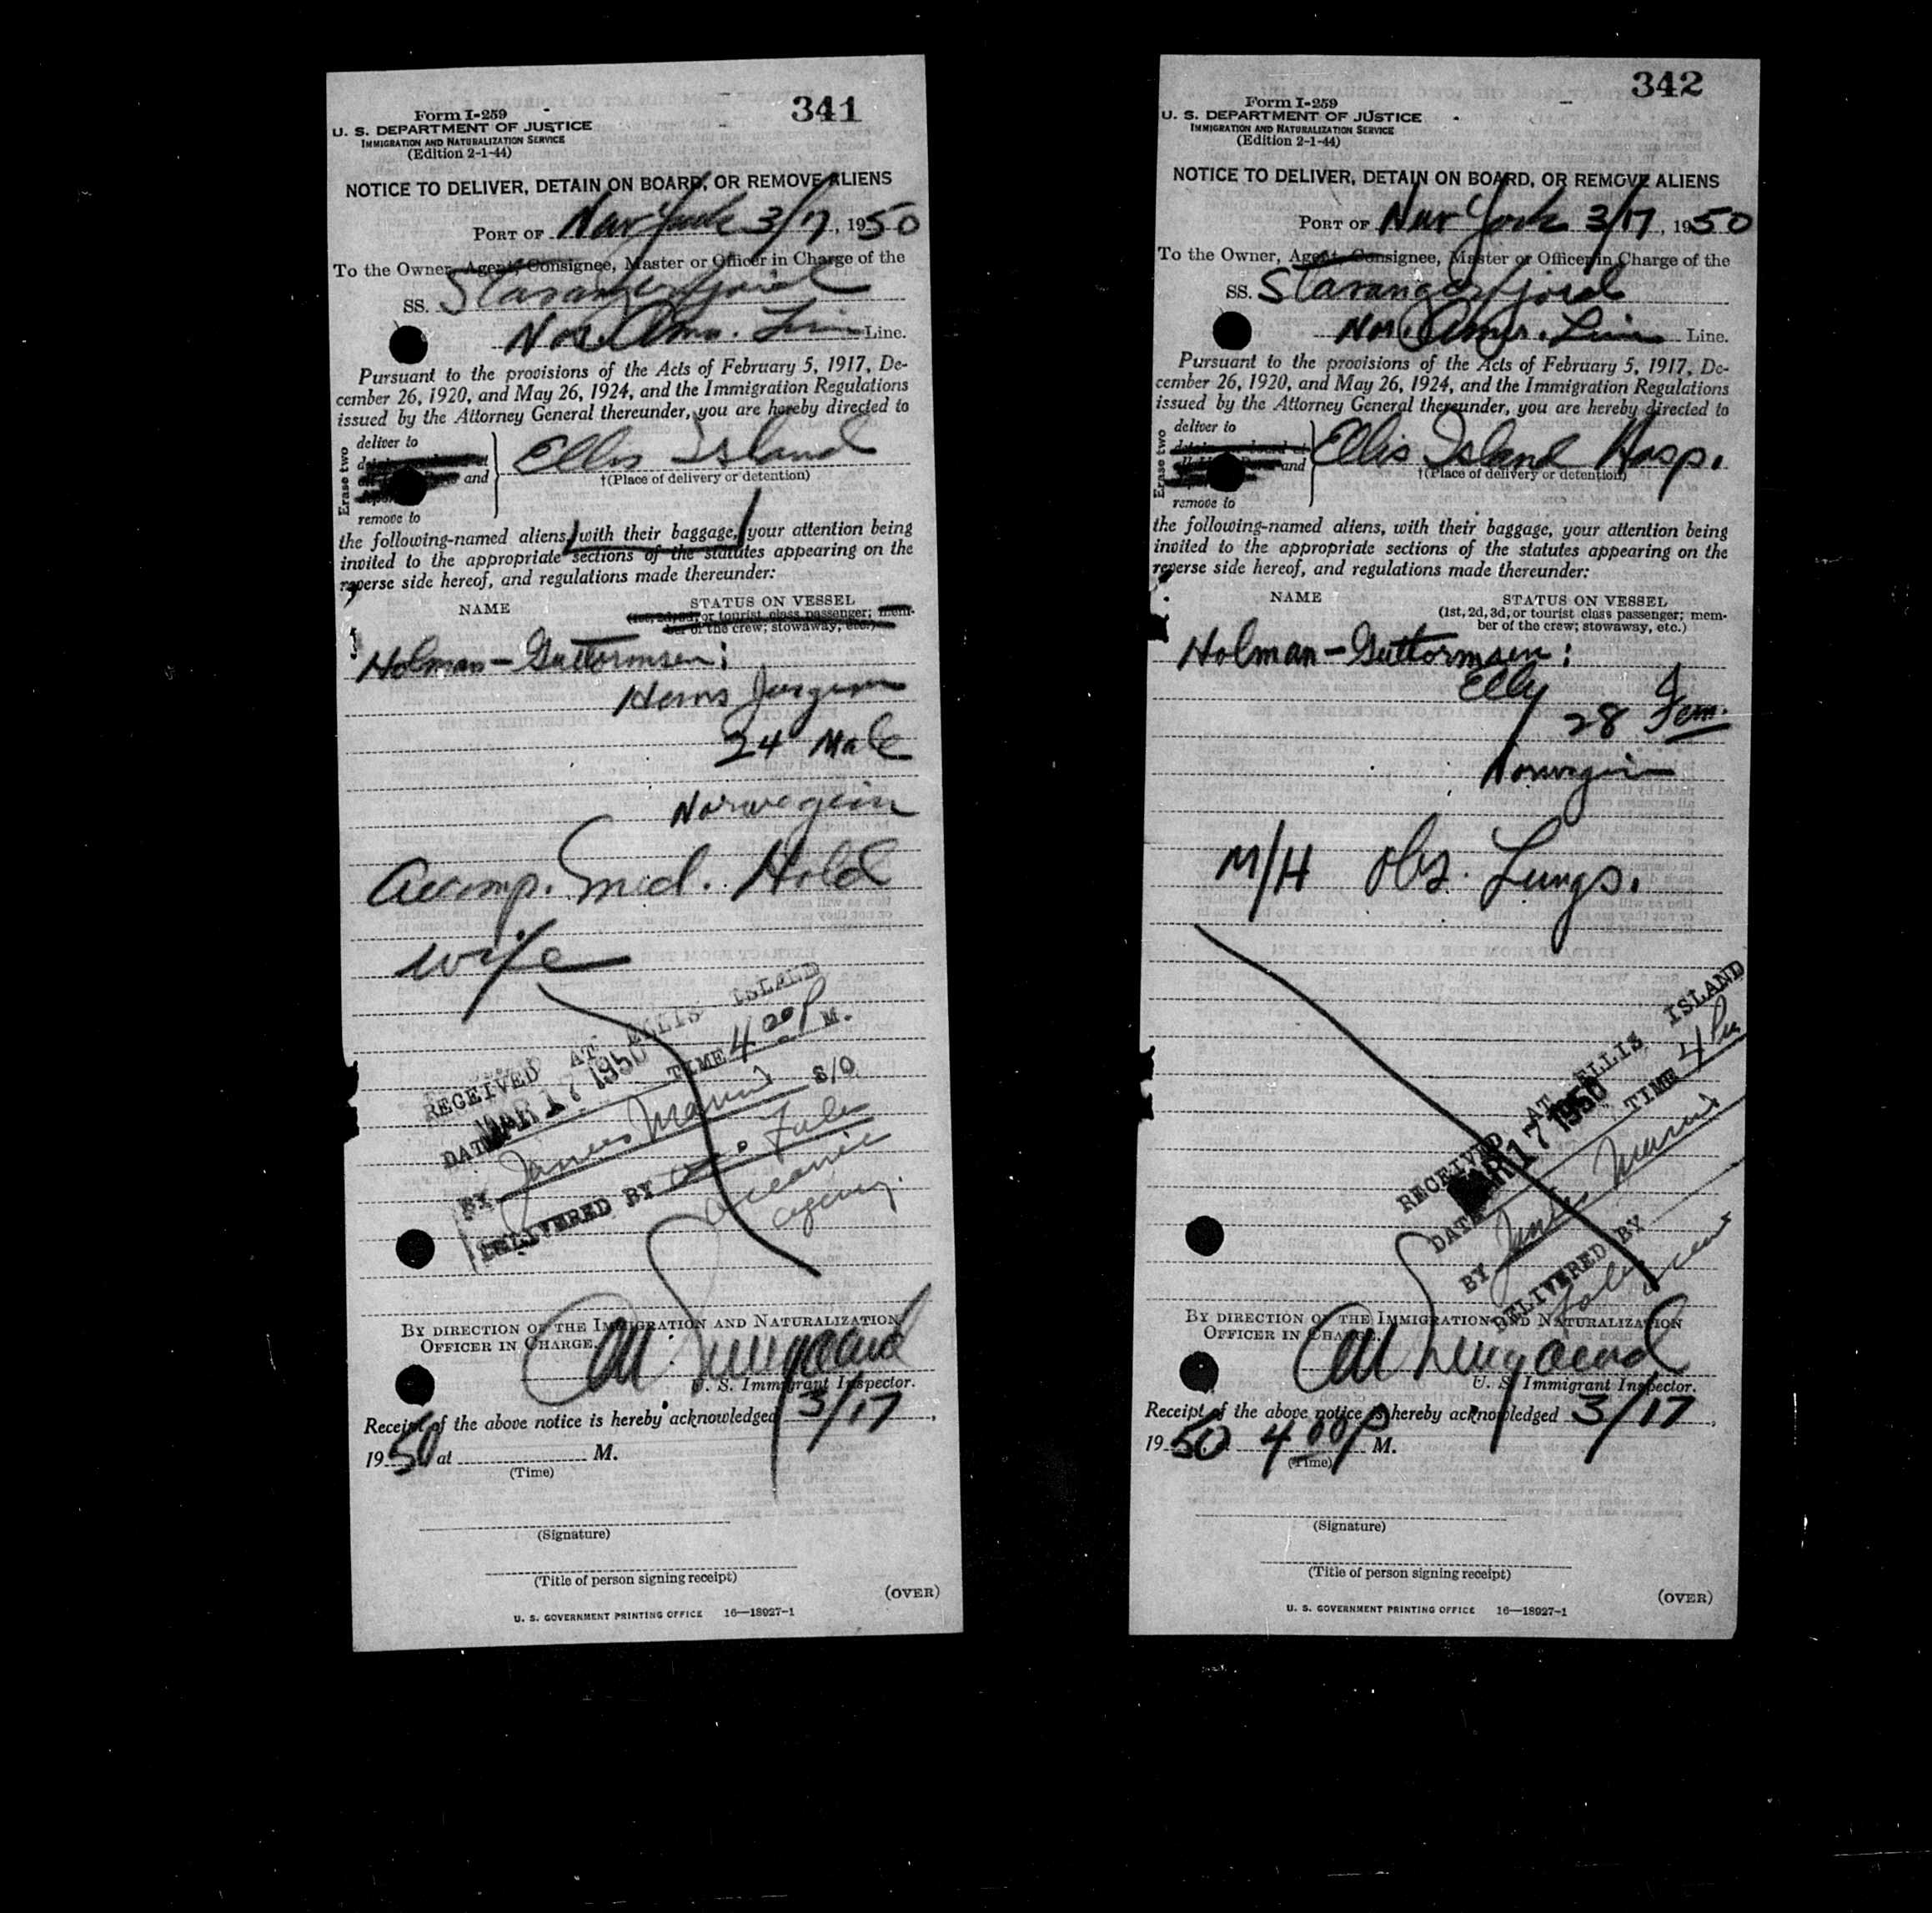 341
Form I-259
U. S. DEPARTMENT OF JUSTICE
IMMIGRATION AND NATURALIZATION SERVICE
(Edition 2-1-44)
NOTICE TO DELIVER, DETAIN ON BOARD, OR REMOVE ALIENS
PORT OF New York 3/17, 1950
To the Owner, Agent, Consignee, Master or Officer in Charge of the
SS. Stavangerfjord
Nor. Am. Line Line.
Pursuant to the provisions of the Acts of February 5, 1917, De-
cember 26, 1920, and May 26, 1924, and the Immigration Regulations
issued by the Attorney General thereunder, you are hereby directed to
Erase two
deliver to
and
remove to
Ellis Island
†(Place of delivery or detention)
the following-named aliens, with their baggage, your attention being
invited to the appropriate sections of the statutes appearing on the
reverse side hereof, and regulations made thereunder:
NAME
STATUS ON VESSEL
(1st, 2d, 3d, or tourist class passenger; mem-
ber of the crew; stowaway, etc.)
Holman-Guttormsen:
Hans Jurgen
24 Male
Norwegian
Accomp. Med. Hold
wife
RECEIVED AT ELLIS ISLAND
DATE MAR 17 1950 TIME 4 00 P M.
BY James S/O
DELIVERED BY
Oceanic
agency.
BY DIRECTION OF THE IMMIGRATION AND NATURALIZATION
OFFICER IN CHARGE.
U. S. Immigrant Inspector.
Receipt of the above notice is hereby acknowledged 3/17,
1950 at M.
(Time)
(Signature)
(Title of person signing receipt)
(OVER)
U. S. GOVERNMENT PRINTING OFFICE 16—18927-1
342
Form I-259
U. S. DEPARTMENT OF JUSTICE
IMMIGRATION AND NATURALIZATION SERVICE
(Edition 2-1-44)
NOTICE TO DELIVER, DETAIN ON BOARD, OR REMOVE ALIENS
PORT OF New York 3/17, 1950
To the Owner, Agent, Consignee, Master or Officer in Charge of the
SS. Stavangerfjord
Nor. Amer. Line Line.
Pursuant to the provisions of the Acts of February 5, 1917, De-
cember 26, 1920, and May 26, 1924, and the Immigration Regulations
issued by the Attorney General thereunder, you are hereby directed to
Erase two
deliver to
and
remove to
Ellis Island Hosp.
†(Place of delivery or detention)
the following-named aliens, with their baggage, your attention being
invited to the appropriate sections of the statutes appearing on the
reverse side hereof, and regulations made thereunder:
NAME
STATUS ON VESSEL
(1st, 2d, 3d, or tourist class passenger; mem-
ber of the crew; stowaway, etc.)
Holman-Guttormsen:
Elly
28 Fem.
Norwegian
M/H Obs. Lungs.
RECEIVED AT ELLIS ISLAND
DATE MAR 17 1950 TIME 4 PM
BY James
DELIVERED BY
BY DIRECTION OF THE IMMIGRATION AND NATURALIZATION
OFFICER IN CHARGE.
U. S. Immigrant Inspector.
Receipt of the above notice is hereby acknowledged 3/17,
1950 4 00 P M.
(Time)
(Signature)
(Title of person signing receipt)
(OVER)
U. S. GOVERNMENT PRINTING OFFICE 16—18927-1